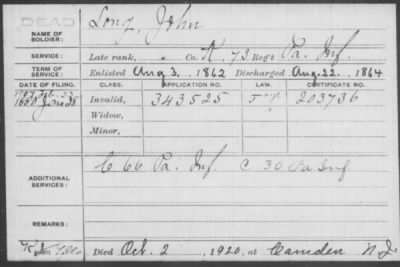 DEAD
NAME OF SOLDIER: Long, John
SERVICE: Late rank, Co. K, 73 Regt Pa. Inf.
TERM OF SERVICE: Enlisted Aug 3, 1862 Discharged Aug. 22, 1864
DATE OF FILING. CLASS. APPLICATION NO. LAW. CERTIFICATE NO.
1880 Jan 28 Invalid, 343525 203736
Widow,
Minor,
ADDITIONAL SERVICES: C 66 Pa. Inf. C 30 Pa Inf
REMARKS:
Died Oct. 2, 1920, at Camden N J